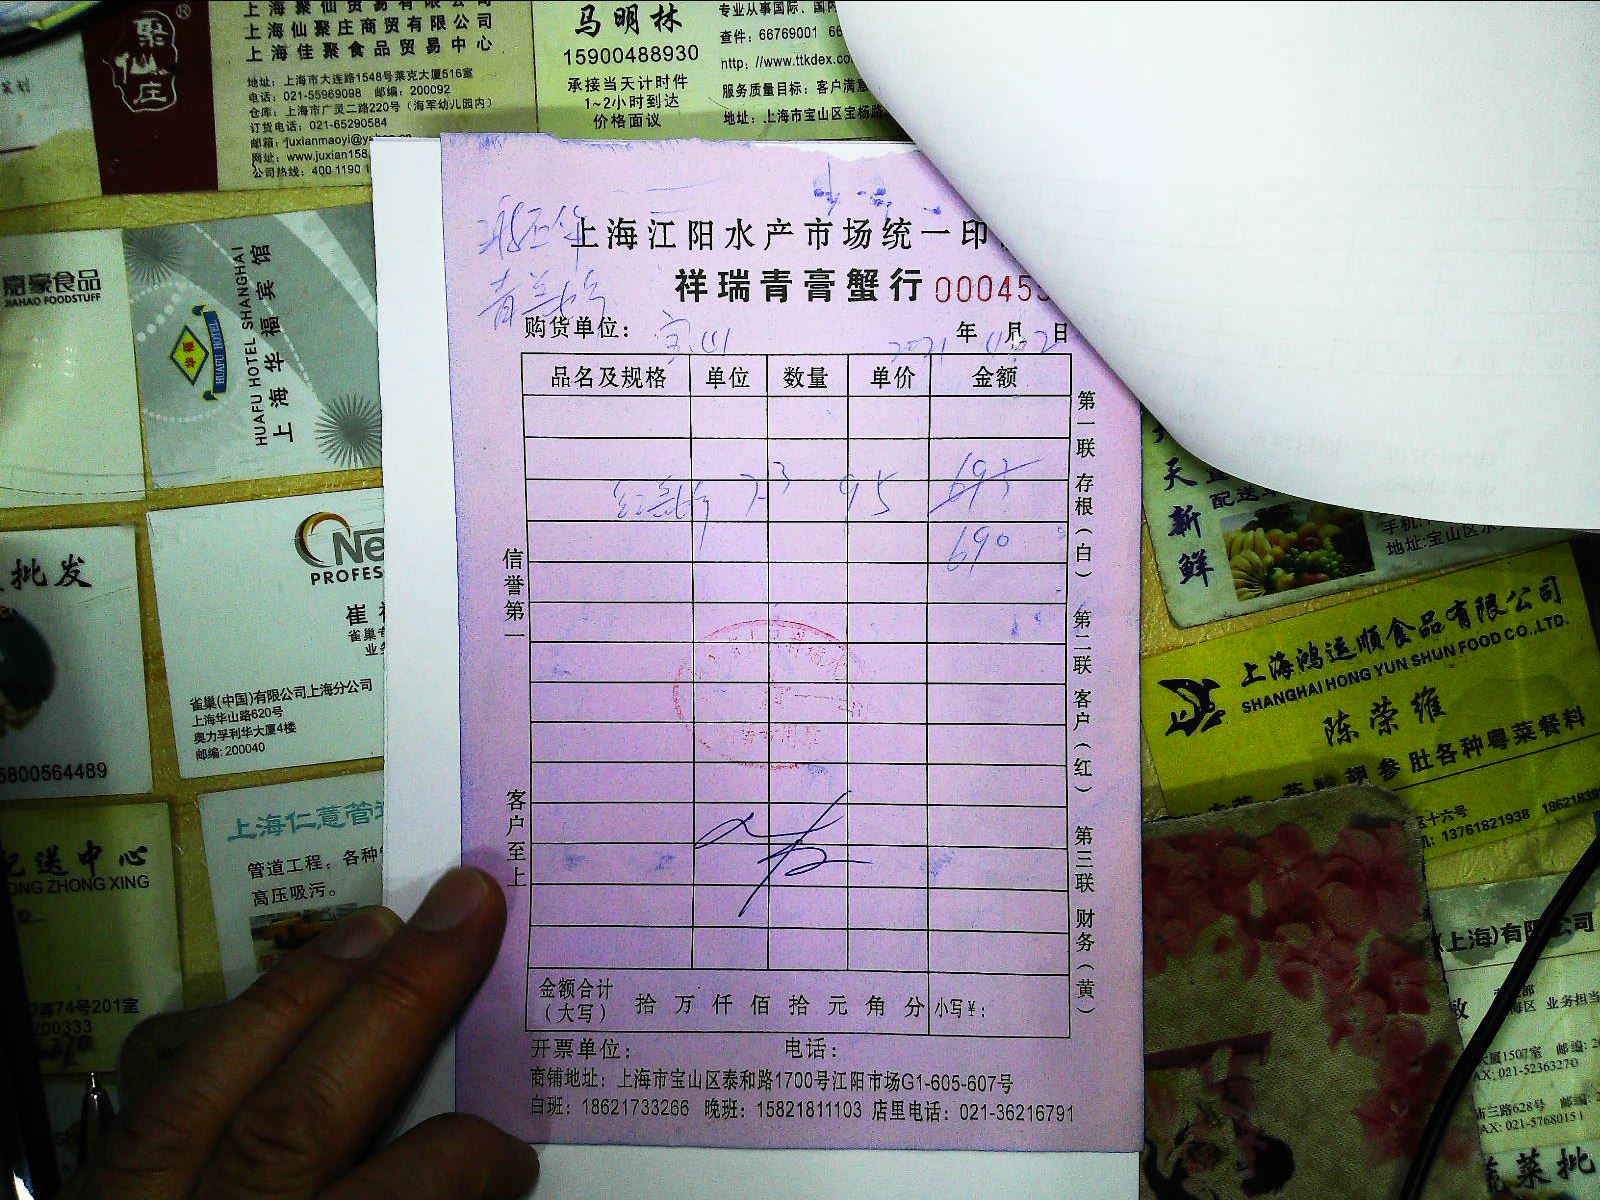 聚仙庄
上海聚仙贸易有限公司
上海仙聚庄商贸有限公司
上海佳聚食品贸易中心
地址：上海市大连路1548号莱克大厦516室
电话：021-55969098 邮编：200092
仓库：上海市广灵二路220号（海军幼儿园内）
订货电话：021-65290584
邮箱：juxianmaoyi@
网址：www.juxian158.
公司热线：400 1190 1
马明林
15900488930
承接当天计时件
1~2小时到达
价格面议
专业从事国际、国内
查件：66769001 66
http：//www.ttkdex.co
服务质量目标：客户满意
地址：上海市宝山区宝杨路
嘉豪食品
JIAHAO FOODSTUFF
华福
HUAFU HOTEL
HUAFU HOTEL SHANGHAI
上海华福宾馆
批发
5800564489
Ne
PROFES
崔
雀巢
业务
雀巢(中国)有限公司上海分公司
上海华山路620号
奥力孚利华大厦4楼
邮编：200040
上海仁薏管
管道工程：各种
高压吸污。
配送中心
ONG ZHONG XING
弄74号201室
200333
上海江阳水产市场统一印
祥瑞青膏蟹行 000455
购货单位：宝山 2021年11月2日
品名及规格 单位 数量 单价 金额
7-3 95 693
690
信誉第一 客户至上
第一联 存根（白） 第二联 客户（红） 第三联 财务（黄）
金额合计（大写） 拾万仟佰拾元角分 小写¥：
开票单位： 电话：
商铺地址：上海市宝山区泰和路1700号江阳市场G1-605-607号
白班：18621733266 晚班：15821811103 店里电话：021-36216791
天新鲜
配送
手机：
地址：宝山区水
上海鸿运顺食品有限公司
SHANGHAI HONG YUN SHUN FOOD CO.,LTD.
陈荣维
翅参肚各种粤菜餐料
区十六号
机：13761821938 1862183
(上海)有限公司
海区 业务担当
大厦1507室 邮编：20
AX: 021-52363270
亩三路628号 邮编：2
AX: 021-57680151
蔬菜批